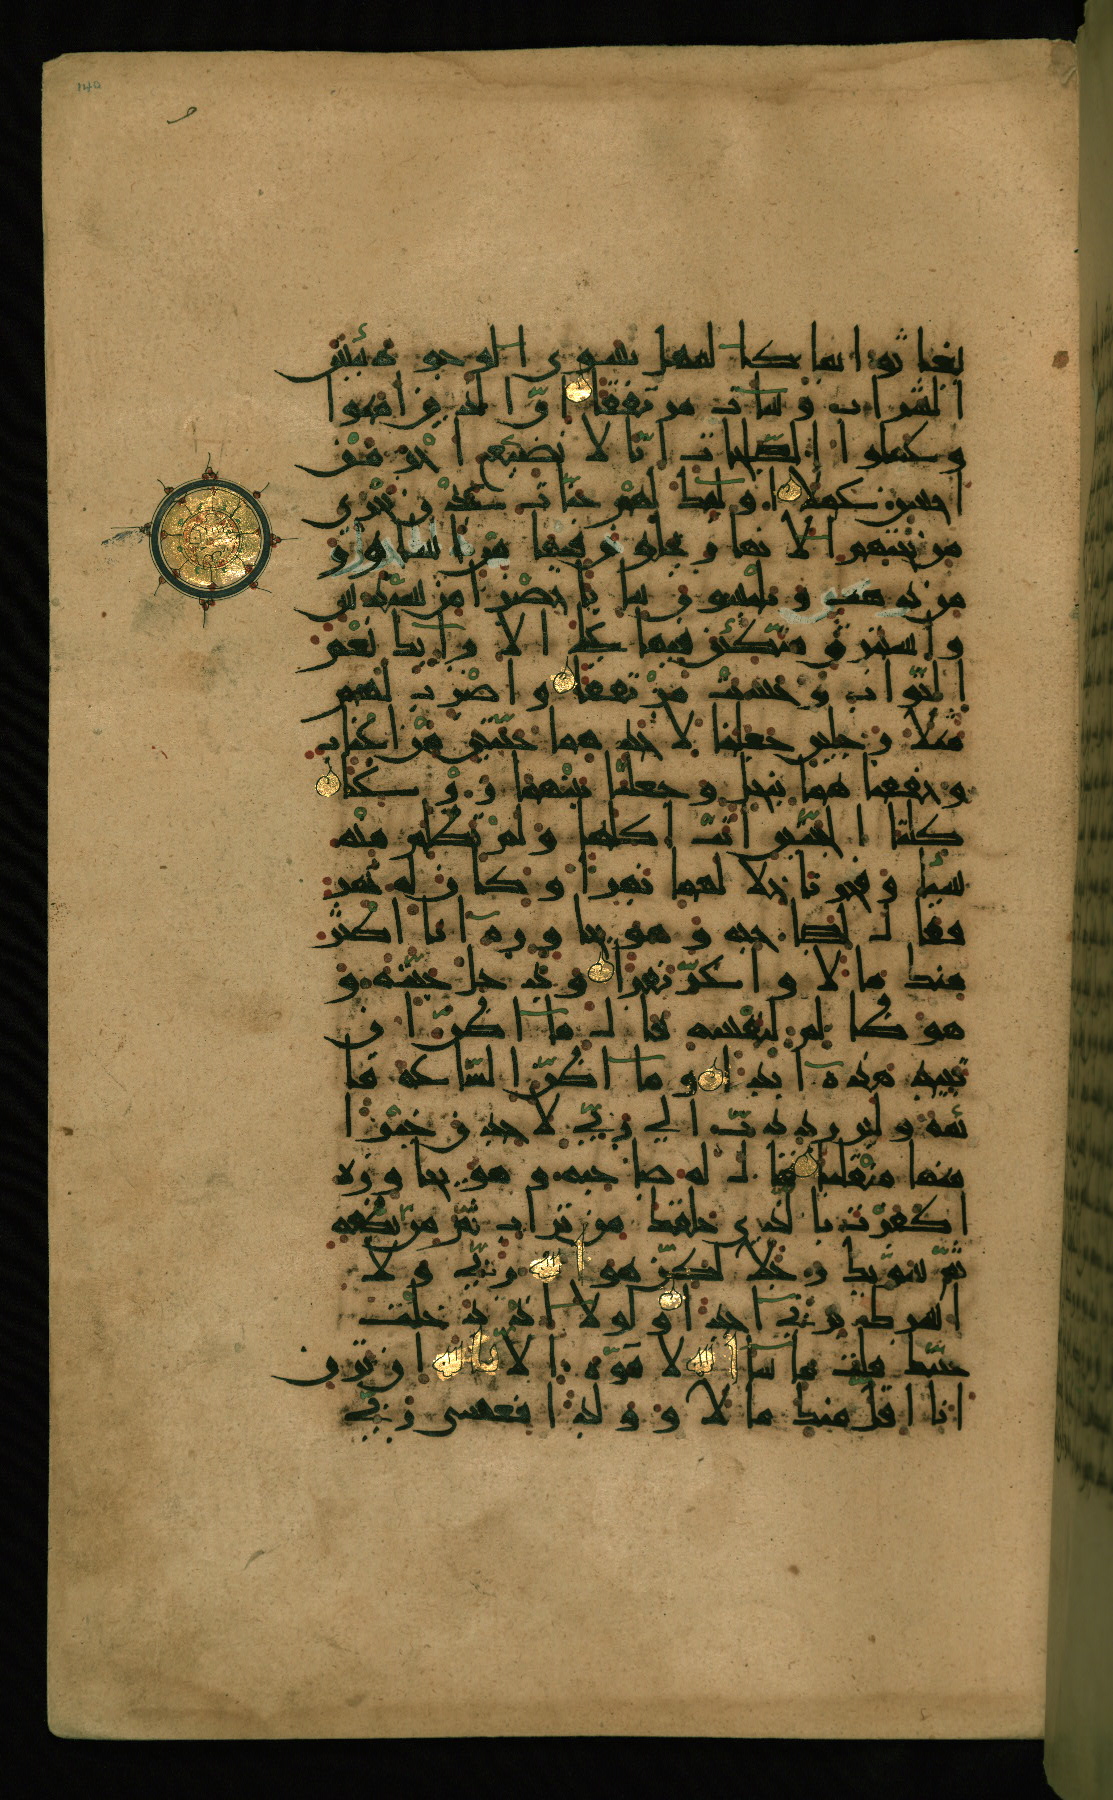 140
يغاثوا بما كالمهل يشوى الوجوه بئس
الشراب وسات مرتفقا ان الذين امنوا
وعملوا الصلحات انا لا نضيع اجر من
احسن عملا اولئك لهم جنات عدن تجرى
من تحتهم الانهار يحلون فيها من اساور
من ذهب ويلبسون ثيابا خضرا من سندس
واستبرق متكئين فيها على الارائك نعم
الثواب وحسنت مرتفقا واضرب لهم
مثلا رجلين جعلنا لاحدهما جنتين من اعناب
وحففناهما بنخل وجعلنا بينهما زرعا
كلتا الجنتين اتت اكلها ولم تظلم منه
شيئا وفجرنا خلالهما نهرا وكان له ثمر
فقال لصاحبه وهو يحاوره انا اكثر
منك مالا واعز نفرا ودخل جنته و
هو ظالم لنفسه قال ما اظن ان
تبيد هذه ابدا وما اظن الساعة قا
ئمة ولئن رددت الى ربى لاجدن خيرا
منها منقلبا قال له صاحبه وهو يحاوره
اكفرت بالذى خلقك من تراب ثم من نطفة
ثم سويك رجلا لكن هو الله ربى ولا
اشرك بربى احدا ولولا اذ دخلت
جنتك قلت ما شا الله لا قوة الا بالله ان ترن
انا اقل منك مالا وولدا فعسى ربى